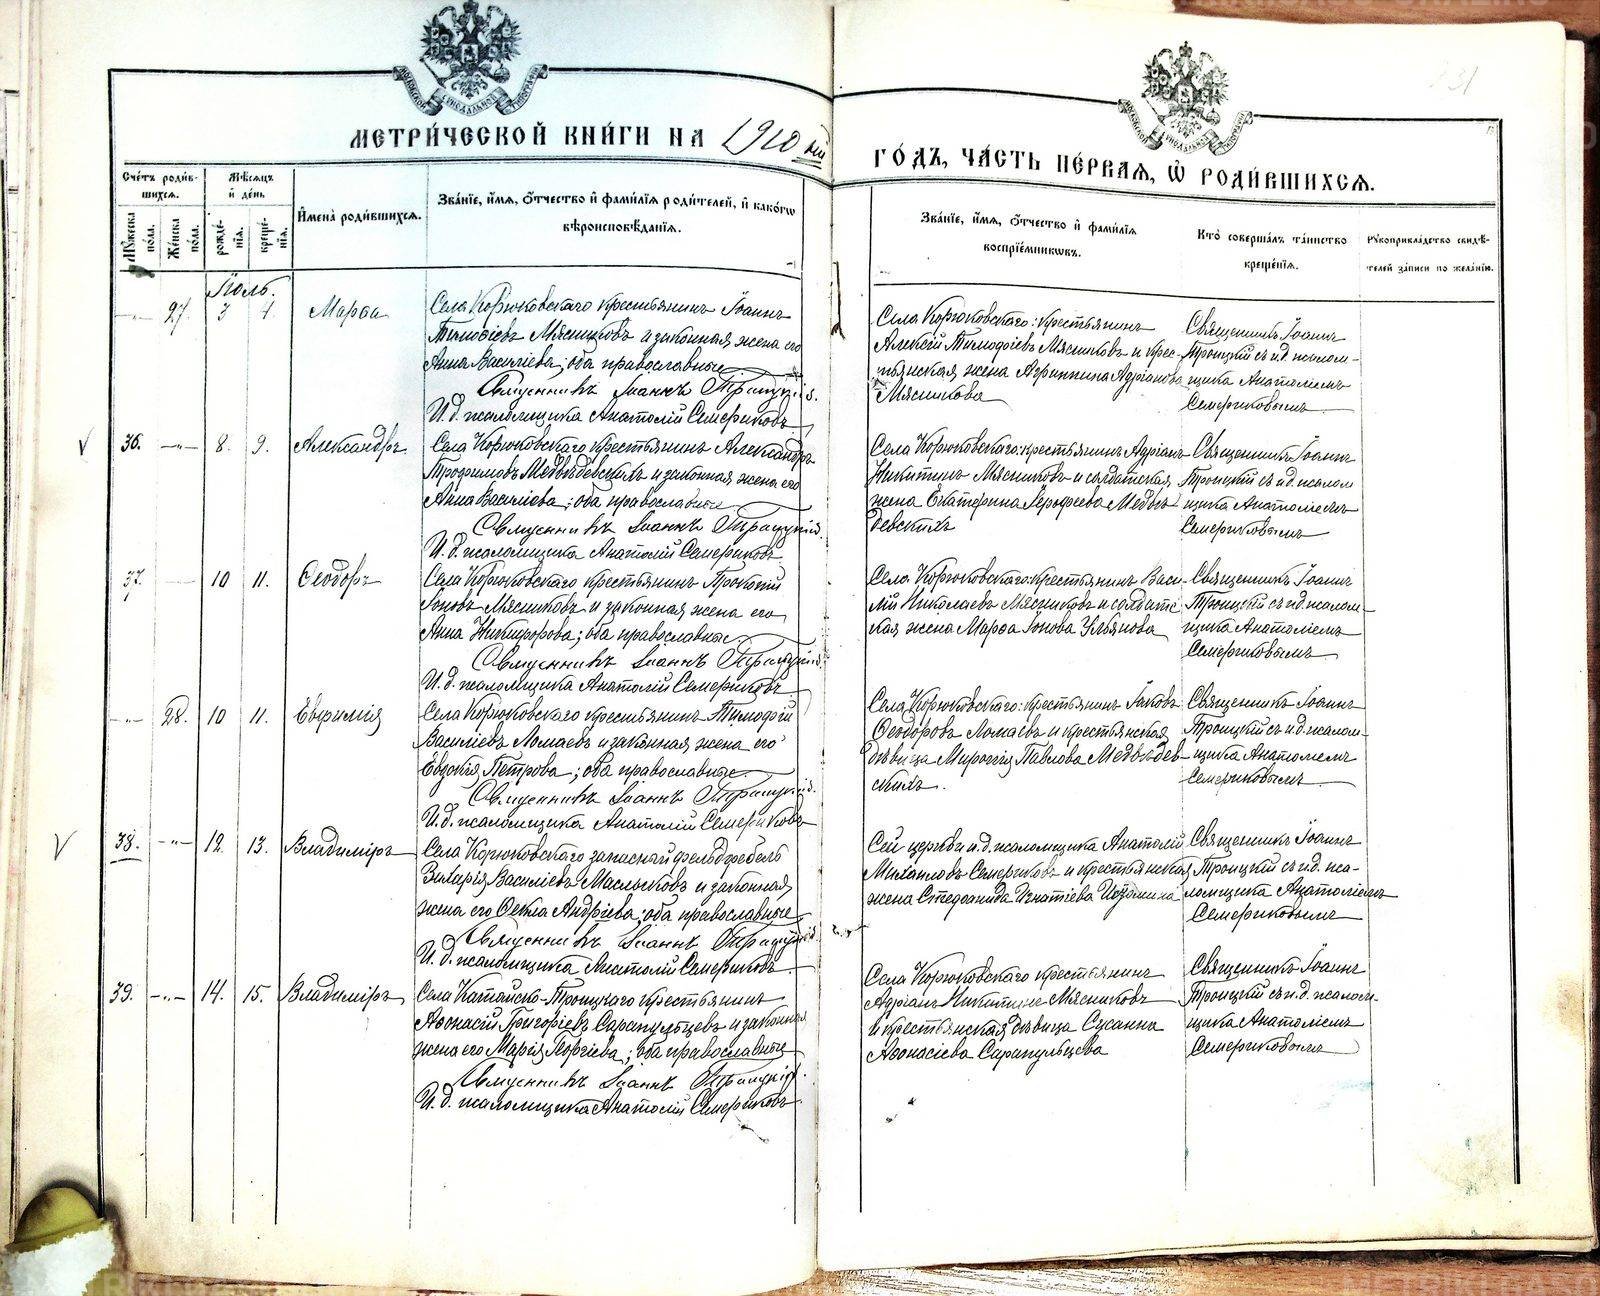 МЕТРИ́ЧЕСКОЙ КНИ́ГИ НА 1910 й
ГО́ДЪ, ЧА́СТЬ ПЕ́РВАЯ, Ѽ РОДИ́ВШИХСЯ.
231
Сче́тъ роди́в-
шихся.
Мꙋ́жеска
по́ла.
Же́нска
по́ла.
Мѣ́сяцъ
и҆ де́нь
рожде́-
нїя.
креще́-
нїя.
И҆мена̀ роди́вшихся.
Зва́нїе, и҆́мя, ѻ҆́тчество и҆ фами́лїя роди́телей, и҆ како́гѡ
вѣроисповѣ́данїя.
Зва́нїе, и҆́мя, ѻ҆́тчество и҆ фами́лїя
воспрїе́мникѡвъ.
Кто̀ соверша́лъ та́инство
креще́нїя.
Рꙋкоприкла́дство свидѣ́-
телей за́писи по жела́нїю.
Іюль.
27 3 4 Марѳа
Села Корюковскаго крестьянинъ Іоаннъ
Тимоѳіевъ Мясниковъ и законная жена его
Анна Василіева; оба православные
Священникъ Іоаннъ Троицкій.
И. д. псаломщика Анатолій Семериковъ
Села Корюковскаго: крестьянинъ
Алексій Тимофіевъ Мясниковъ и крес-
тьянская жена Агриппина Адріанова
Мясникова
Священникъ Іоаннъ
Троицкій съ и.д. псалом-
щика Анатоліемъ
Семериковымъ
36. -"- 8. 9. Александръ
Села Корюковскаго крестьянинъ Александръ
Трофимовъ Медвѣдевскихъ и законная жена его
Анна Василіева; оба православные
Священникъ Іоаннъ Троицкій.
И. д. псаломщика Анатолій Семериковъ
Села Корюковскаго: крестьянинъ Адріанъ
Никитинъ Мясниковъ и солдатская
жена Екатерина Іерофеева Медвѣ-
девскихъ
Священникъ Іоаннъ
Троицкій съ и.д. псалом
щика Анатоліемъ
Семериковымъ
37. 10 11. Ѳеодоръ
Села Корюковскаго крестьянинъ Прокопій
Іоновъ Мясниковъ и законная жена его
Анна Никифорова; оба православные.
Священникъ Іоаннъ Троицкій.
И. д. псаломщика Анатолій Семериковъ
Села Корюковскаго: крестьянинъ Васи-
лій Николаевъ Мясниковъ и солдатс
кая жена Марѳа Іонова Ульянова
Священникъ Іоаннъ
Троицкій съ и.д. псалом-
щика Анатоліемъ
Семериковымъ
-"- 28. 10 11. Евфимія
Села Корюковскаго крестьянинъ Тимофій
Василіевъ Ломаевъ и законная жена его
Евдокія Петрова; оба православные
Священникъ Іоаннъ Троицкій.
И. д. псаломщика Анатолій Семериковъ
Села Корюковскаго: крестьянинъ Іаковъ
Ѳеодоровъ Ломаевъ и крестьянская
дѣвица Миропія Павлова Медвѣдев-
скихъ.
Священникъ Іоаннъ
Троицкій съ и.д. псалом-
щика Анатоліемъ
Семериковымъ
38. -"- 12. 13. Владиміръ
Села Корюковскаго запасный фельдфебель
Василіевъ Маслыковъ и законная
жена его Ѳекла Андріева; оба православные
Священникъ Іоаннъ Троицкій.
И. д. псаломщика Анатолій Семериковъ
Сей церкви и.д. псаломщика Анатолій
Михаиловъ Семериковъ и крестьянская
жена Стефанида Игнатіева
Священникъ Іоаннъ
Троицкій съ и.д. пса-
ломщика Анатоліемъ
Семериковымъ
39. -"- 14. 15. Владиміръ
Села Катайско-Троицкаго крестьянинъ
Аѳонасій Григоріевъ Сарапульцевъ и законная
жена его Марія Георгіева; оба православные
Священникъ Іоаннъ Троицкій.
И. д. псаломщика Анатолій Семериковъ
Села Корюковскаго крестьянинъ
Адріанъ Никитинъ Мясниковъ
и крестьянская дѣвица Сусанна
Аѳонасіева Сарапульцева
Священникъ Іоаннъ
Троицкій съ и.д. псалом-
щика Анатоліемъ
Семериковымъ